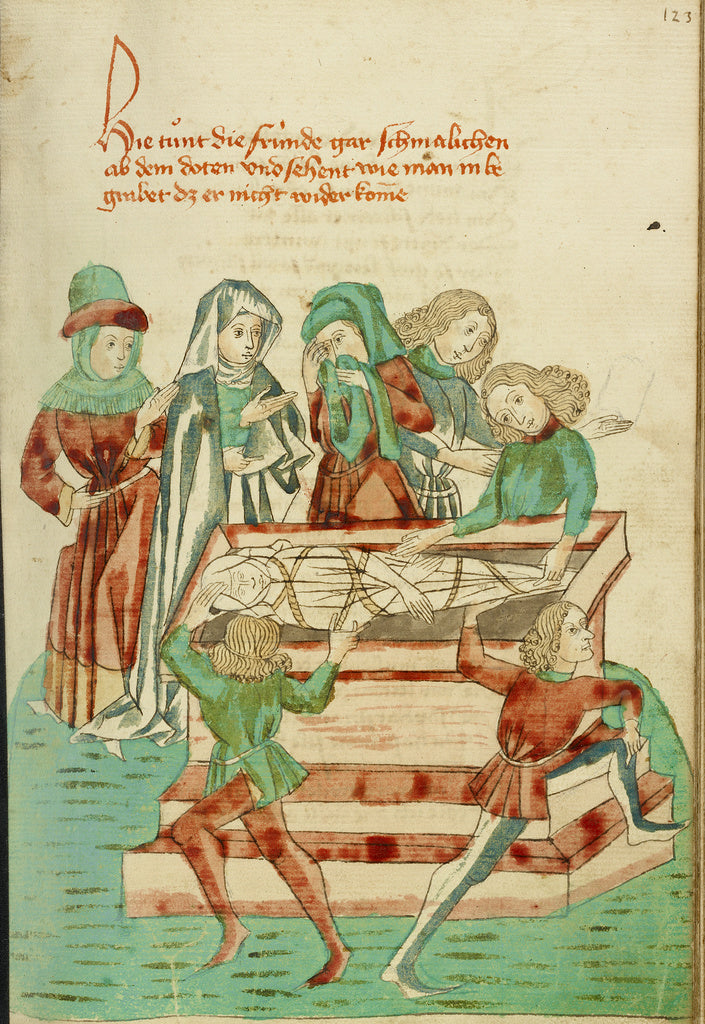 123
Hie tůnt die fründe gar schmalichen
ab dem doten vnd sehent wie man in be
grabet dz er nicht wider kom̄e